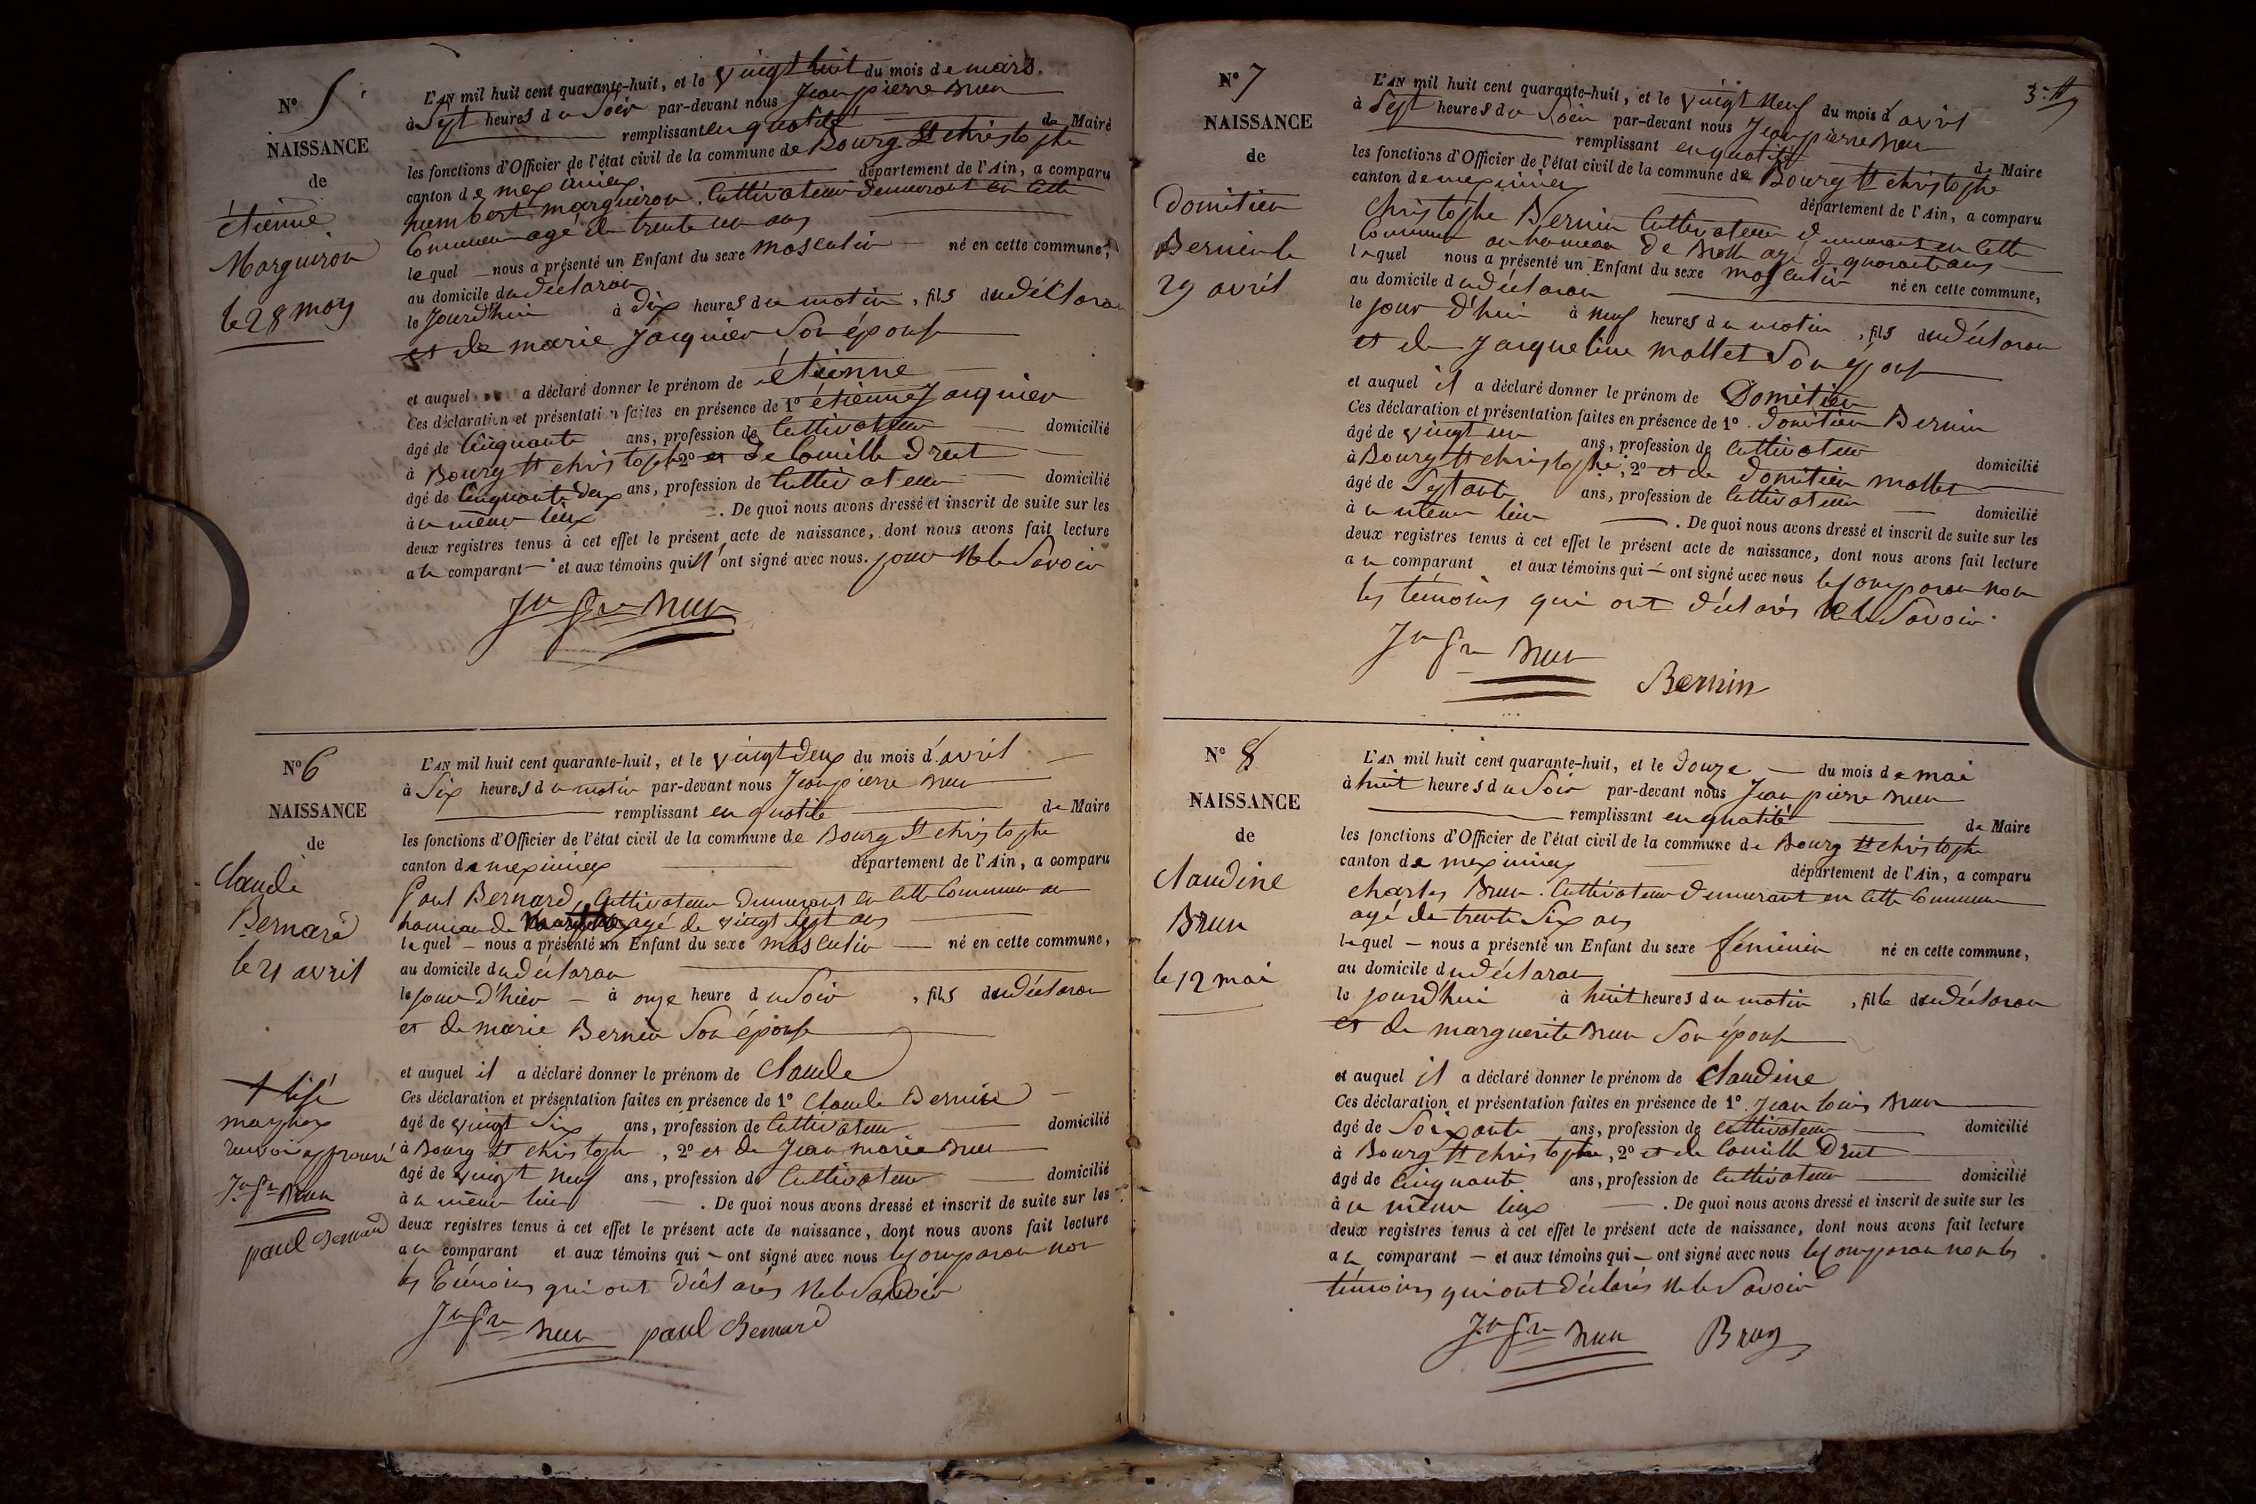 N° 5
NAISSANCE
de
étienne
Marguiron
le 28 mars
L'AN mil huit cent quarante-huit, et le vingt huit du mois de mars.
à Sept heures du Soir par-devant nous Jean pierre Brun
remplissant en qualité de Maire
les fonctions d'Officier de l'état civil de la commune de Bourg St christophe
canton de meximieux département de l'Ain, a comparu
humbert marguiron. Cultivateur demeurant en cette
Commune agé de trente un ans
lequel nous a présenté un Enfant du sexe masculin né en cette commune,
au domicile du déclaran
le Jourd'hui à dix heures du matin, fils du déclaran
et de marie Jacquier Son épouse
et auquel a déclaré donner le prénom de étienne
Ces déclaration et présentation faites en présence de 1° étienne Jacquier
âgé de Cinquante ans, profession de Cultivateur domicilié
à Bourg St christophe 2° et de Camille Drut
âgé de Cinquante deux ans, profession de Cultivateur domicilié
à u même lieux. De quoi nous avons dressé et inscrit de suite sur les
deux registres tenus à cet effet le présent acte de naissance, dont nous avons fait lecture
au comparant et aux témoins qui n'ont signé avec nous. pour Ne le Savoir
Jn Pre Brun
N° 6
NAISSANCE
de
Claude
Bernard
le 21 avril
L'AN mil huit cent quarante-huit, et le vingt deux du mois d'avril
à Six heures du matin par-devant nous Jean pierre Brun
remplissant en qualité de Maire
les fonctions d'Officier de l'état civil de la commune de Bourg St christophe
canton de meximieux département de l'Ain, a comparu
Paul Bernard, Cultivateur Demeurant en cette Commune au
hameau de agé de vingt Sept ans
lequel nous a présenté un Enfant du sexe masculin né en cette commune,
au domicile du déclaran
le jour d'hier à onze heure du Soir, fils du déclaran
et de marie Bernin Son épouse
et auquel il a déclaré donner le prénom de Claude
Ces déclaration et présentation faites en présence de 1° Claude Bernin
âgé de vingt Six ans, profession de Cultivateur domicilié
à Bourg St christophe, 2° et de Jean marie Brun
âgé de vingt Neuf ans, profession de Cultivateur domicilié
à u même lieu. De quoi nous avons dressé et inscrit de suite sur les
deux registres tenus à cet effet le présent acte de naissance, dont nous avons fait lecture
au comparant et aux témoins qui ont signé avec nous le Comparan non
les Témoins qui ont déclarés Ne le Savoir
Jn Pre Brun paul Bernard
renvoi approuvé
Jn Pre Brun
paul Bernard
3e
N° 7
NAISSANCE
de
Domitien
Bernin le
29 avril
L'AN mil huit cent quarante-huit, et le vingt Neuf du mois d'avril
à Sept heures du Soir par-devant nous Jean pierre Brun
remplissant en qualité de Maire
les fonctions d'Officier de l'état civil de la commune de Bourg St christophe
canton de meximieux département de l'Ain, a comparu
Christophe Bernin Cultivateur demeurant en cette
Commune au hameau de agé de quarante ans
lequel nous a présenté un Enfant du sexe masculin né en cette commune,
au domicile du déclaran
le jour d'hui à neuf heures du matin, fils du déclaran
et de Jacqueline mollet Son épouse
et auquel il a déclaré donner le prénom de Domitien
Ces déclaration et présentation faites en présence de 1° Domitien Bernin
âgé de vingt un ans, profession de Cultivateur domicilié
à Bourg St christophe, 2° et de Domitien mollet
âgé de Septante ans, profession de Cultivateur domicilié
à u même lieu. De quoi nous avons dressé et inscrit de suite sur les
deux registres tenus à cet effet le présent acte de naissance, dont nous avons fait lecture
au comparant et aux témoins qui ont signé avec nous le Comparan non
les témoins qui ont déclarés Ne le Savoir
Jn Pre Brun
Bernin
N° 8
NAISSANCE
de
Claudine
Brun
le 12 mai
L'AN mil huit cent quarante-huit, et le Douze du mois de mai
à huit heures du Soir par-devant nous Jean pierre Brun
remplissant en qualité de Maire
les fonctions d'Officier de l'état civil de la commune de Bourg St christophe
canton de meximieux département de l'Ain, a comparu
charles Brun. Cultivateur demeurant en cette Commune
agé de trente Six ans
lequel nous a présenté un Enfant du sexe féminin né en cette commune,
au domicile du déclaran
le jourd'hui à huit heures du matin, fille du déclaran
et de marguerite Brun Son épouse
et auquel il a déclaré donner le prénom de Claudine
Ces déclaration et présentation faites en présence de 1° Jean louis Brun
âgé de Soixante ans, profession de Cultivateur domicilié
à Bourg St christophe, 2° et de Camille Drut
âgé de Cinquante ans, profession de Cultivateur domicilié
à u même lieux. De quoi nous avons dressé et inscrit de suite sur les
deux registres tenus à cet effet le présent acte de naissance, dont nous avons fait lecture
au comparant et aux témoins qui ont signé avec nous le Comparan non les
témoins qui ont déclarés Ne le Savoir
Jn Pre Brun Brun